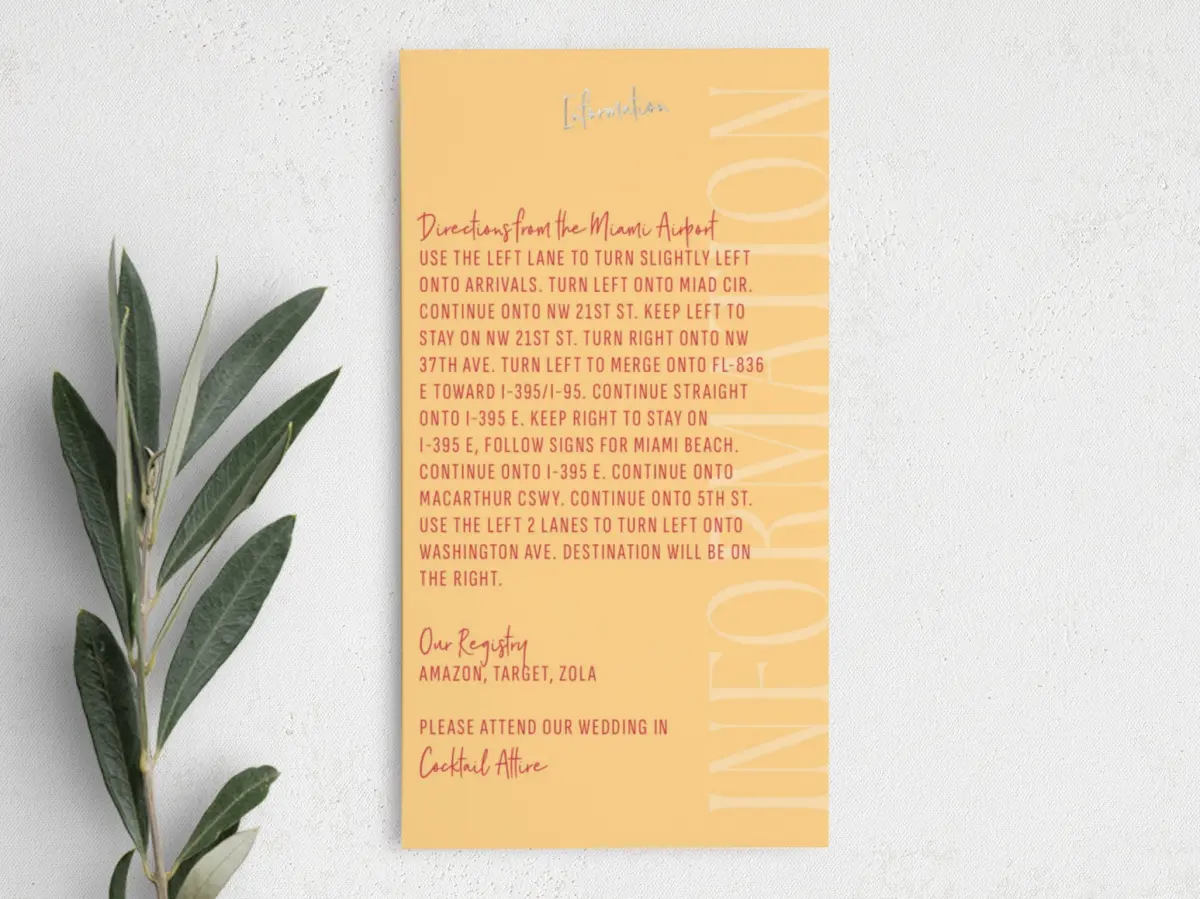 Information
Directions from the Miami Airport
USE THE LEFT LANE TO TURN SLIGHTLY LEFT
ONTO ARRIVALS. TURN LEFT ONTO MIAD CIR.
CONTINUE ONTO NW 21ST ST. KEEP LEFT TO
STAY ON NW 21ST ST. TURN RIGHT ONTO NW
37TH AVE. TURN LEFT TO MERGE ONTO FL-836
E TOWARD I-395/I-95. CONTINUE STRAIGHT
ONTO I-395 E. KEEP RIGHT TO STAY ON
I-395 E, FOLLOW SIGNS FOR MIAMI BEACH.
CONTINUE ONTO I-395 E. CONTINUE ONTO
MACARTHUR CSWY. CONTINUE ONTO 5TH ST.
USE THE LEFT 2 LANES TO TURN LEFT ONTO
WASHINGTON AVE. DESTINATION WILL BE ON
THE RIGHT.
Our Registry
AMAZON, TARGET, ZOLA
PLEASE ATTEND OUR WEDDING IN
Cocktail Attire
INFORMATION